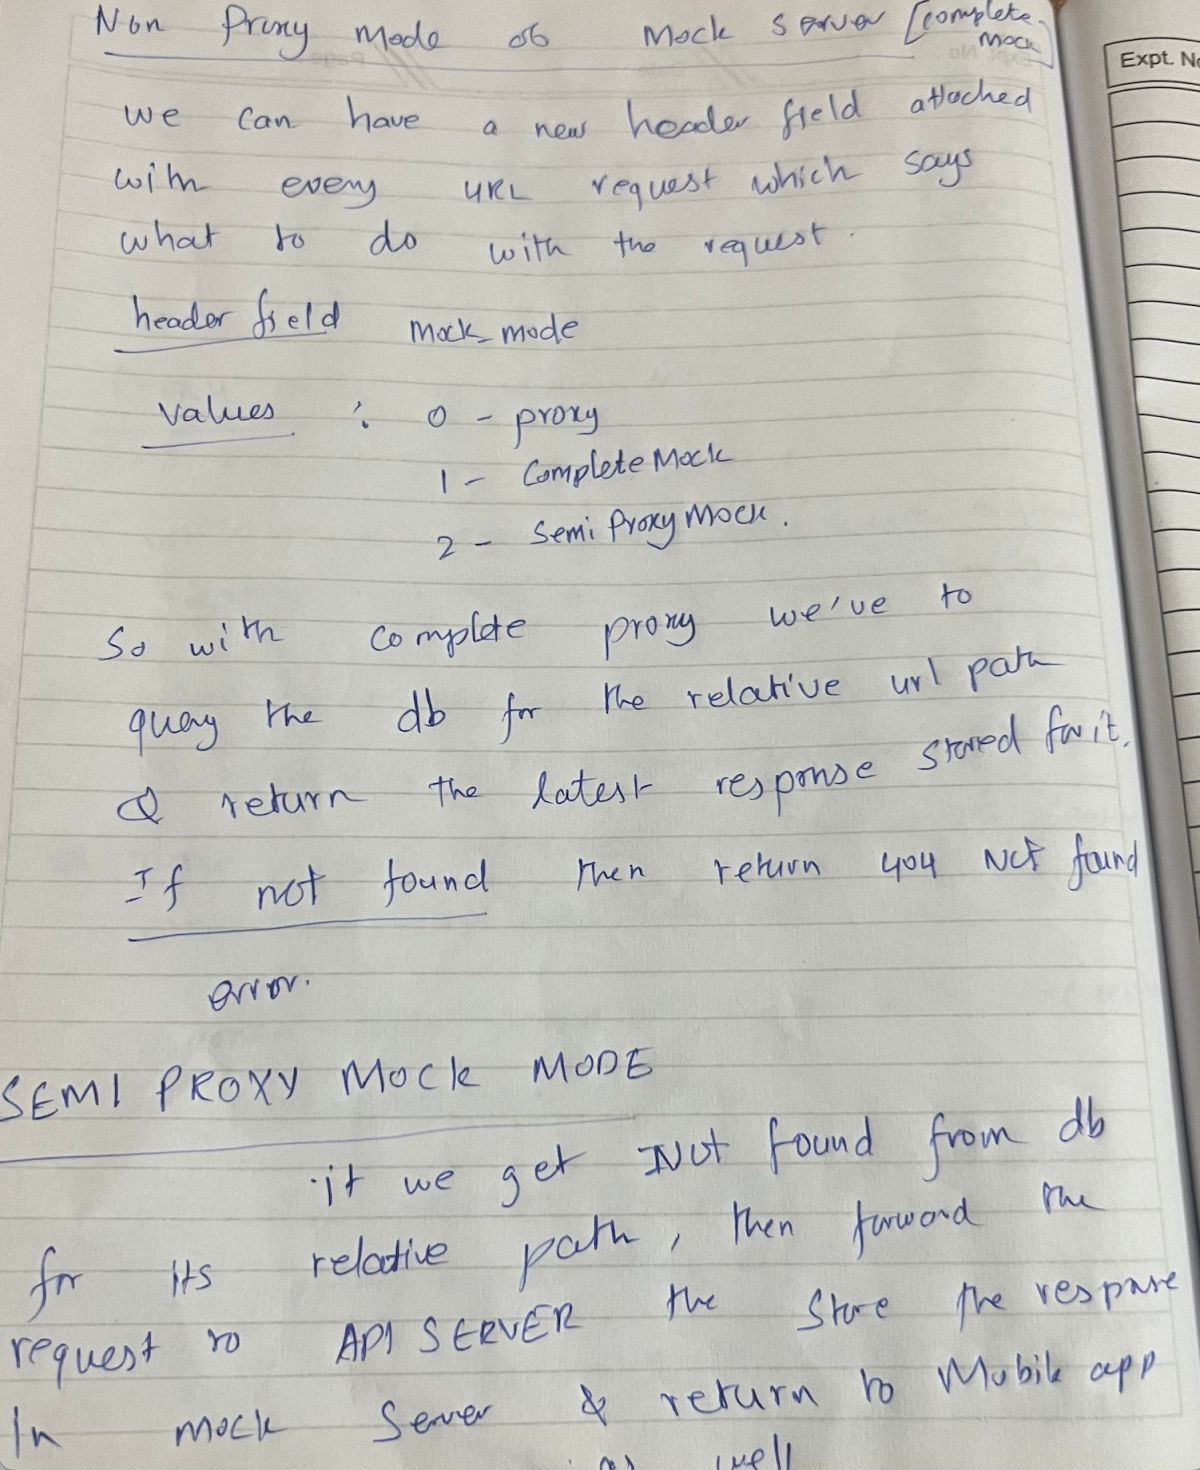 Non Proxy Mode of Mock Server [complete
Mock]
we can have a new header field attached
with every URL request which says
what to do with the request.
header field mock_mode
values : 0 - proxy
1 - Complete Mock
2 - Semi Proxy Mock.
So with complete proxy we've to
query the db for the relative url path
& return the latest response stored for it.
If not found then return 404 Not found
error.
SEMI PROXY Mock MODE
if we get Not found from db
for its relative path, then forward the
request to API SERVER the Store the response
In mock Server & return to Mobile app
as well
Expt. No